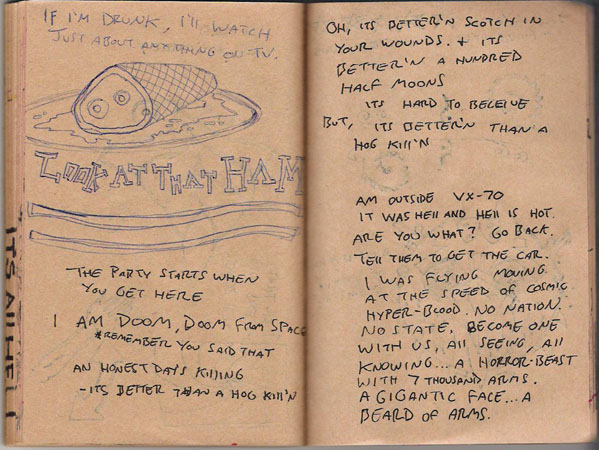 IF I'M DRUNK, I'LL WATCH
JUST ABOUT ANYTHING ON TV.
LOOK AT THAT HAM
THE PARTY STARTS WHEN
YOU GET HERE
I AM DOOM, DOOM FROM SPACE
*REMEMBER YOU SAID THAT
AN HONEST DAYS KILLING
- ITS BETTER THAN A HOG KILL'N
OH, ITS BETTER'N SCOTCH IN
YOUR WOUNDS. + ITS
BETTER'N A HUNDRED
HALF MOONS
ITS HARD TO BELEIVE
BUT, ITS BETTER'N THAN A
HOG KILL'N
AM OUTSIDE VX-70
IT WAS HELL AND HELL IS HOT.
ARE YOU WHAT? GO BACK.
TELL THEM TO GET THE CAR.
I WAS FLYING MOVING
AT THE SPEED OF COSMIC
HYPER-BLOOD. NO NATION.
NO STATE. BECOME ONE
WITH US, ALL SEEING, ALL
KNOWING... A HORROR-BEAST
WITH 7 THOUSAND ARMS.
A GIGANTIC FACE... A
BEARD OF ARMS.